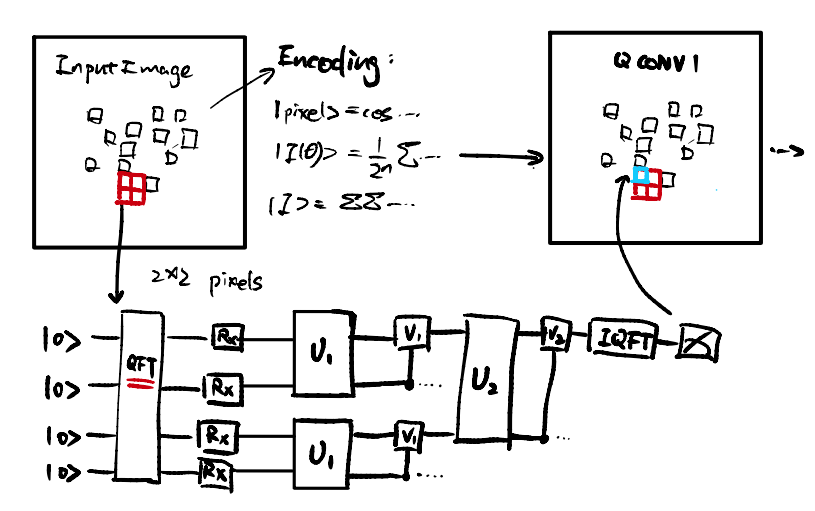 Input Image
Encoding:
|pixels> = cos ...
|I(θ)> = 1/2n Σ ...
|I> = ΣΣ ...
Q CONV 1
...
2x2 pixels
|0>
|0>
|0>
|0>
QFT
Rx
Rx
Rx
Rx
U1
U1
V1
....
V1
....
U2
V2
...
IQFT